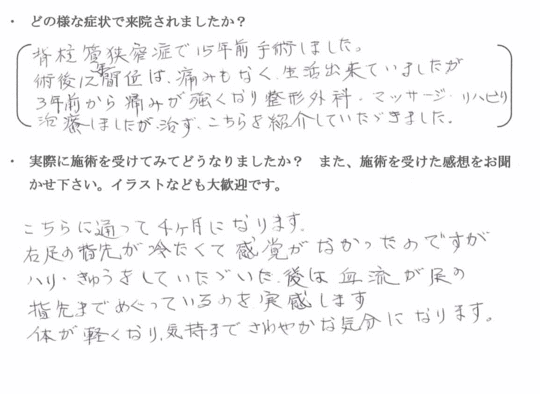 ・ どの様な症状で来院されましたか？
脊柱管狭窄症で15年前手術しました。
術後12年間位は、痛みもなく、生活出来ていましたが
3年前から痛みが強くなり整形外科・マッサージ・リハビリ
治療しましたが治ず、こちらを紹介していただきました。
・ 実際に施術を受けてみてどうなりましたか？ また、施術を受けた感想をお聞
かせ下さい。イラストなども大歓迎です。
こちらに通って4ヶ月になります。
右足の指先が冷たくて感覚がなかったのですが
ハリ・きゅうをしていただいた後は血流が足の
指先までめぐっているのを実感します
体が軽くなり、気持までさわやかな気分になります。